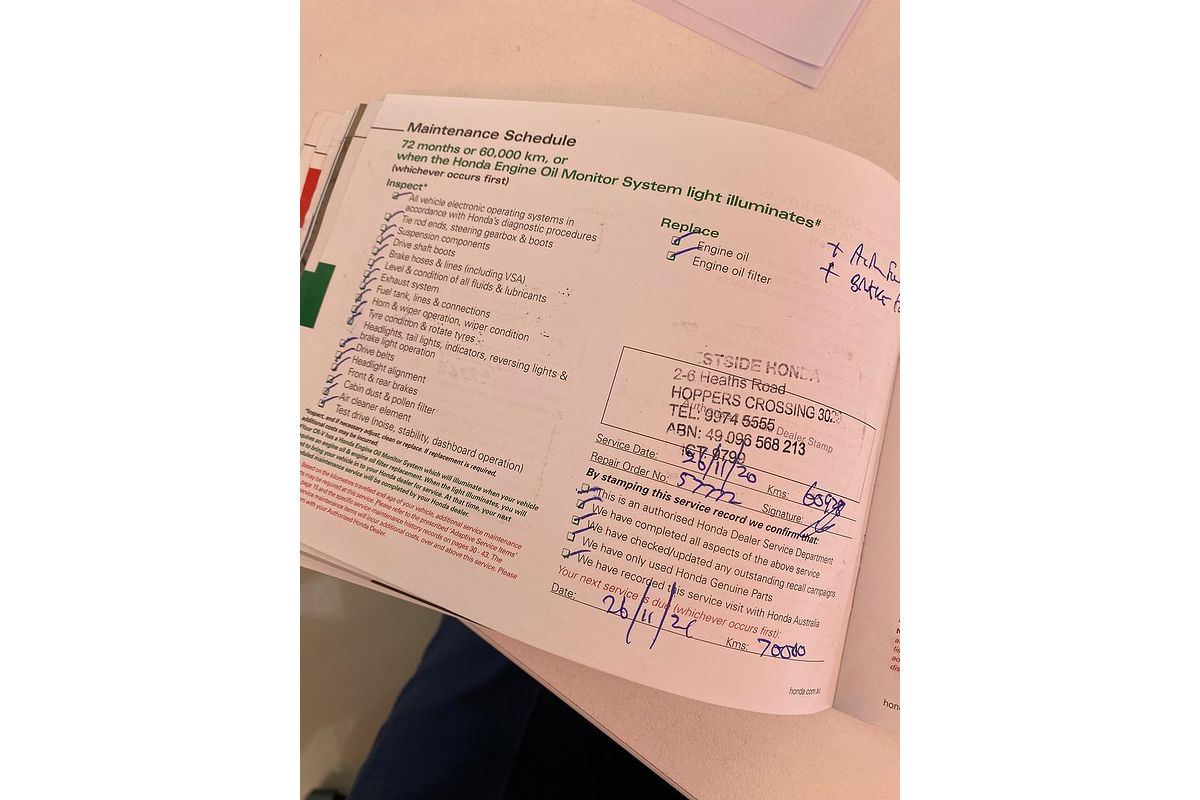 Maintenance Schedule
72 months or 60,000 km, or
when the Honda Engine Oil Monitor System light illuminates#
(whichever occurs first)
Inspect*
All vehicle electronic operating systems in
accordance with Honda's diagnostic procedures
Tie rod ends, steering gearbox & boots
Suspension components
Drive shaft boots
Brake hoses & lines (including VSA)
Level & condition of all fluids & lubricants
Exhaust system
Fuel tank, lines & connections
Horn & wiper operation, wiper condition
Tyre condition & rotate tyres
Headlights, tail lights, indicators, reversing lights &
brake light operation
Drive belts
Headlight alignment
Front & rear brakes
Cabin dust & pollen filter
Air cleaner element
Test drive (noise, stability, dashboard operation)
*Inspect, and if necessary adjust, clean or replace. If replacement is required,
additional costs may be incurred.
Your CR-V has a Honda Engine Oil Monitor System which will illuminate when your vehicle
requires an engine oil & engine oil filter replacement. When the light illuminates, you will
to bring your vehicle in to your Honda dealer for service. At that time, your next
maintenance service will be completed by your Honda dealer.
Based on the kilometres travelled and age of your vehicle, additional service maintenance
may be required at this service. Please refer to the prescribed "Adaptive Service Items"
page 15 and the specific service maintenance history records on pages 30 - 43. The
service maintenance items will incur additional costs, over and above this service. Please
with your Authorised Honda Dealer.
Replace
Engine oil
Engine oil filter
+
+ BRAKE
STSIDE HONDA
2-6 Heaths Road
HOPPERS CROSSING 3029
Authorised Dealer Stamp
TEL: 9974 5555
ABN: 49 096 568 213
Service Date: 26/11/20 Kms:
Repair Order No: Signature:
By stamping this service record we confirm that:
This is an authorised Honda Dealer Service Department
We have completed all aspects of the above service
We have checked/updated any outstanding recall campaigns
We have only used Honda Genuine Parts
We have recorded this service visit with Honda Australia
Your next service is due (whichever occurs first):
Date: 26/11/21 Kms: 70000
honda.com.au